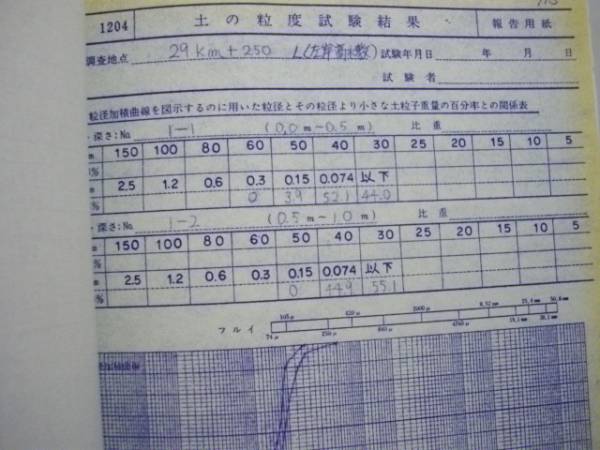 1204 土の粒度試験結果 報告用紙
調査地点 29km+250 L(左岸高水敷) 試験年月日 年 月 日
試験者
粒径加積曲線を図示するのに用いた粒径とその粒径より小さな土粒子重量の百分率との関係表
・深さ:No. 1-1 (0.0m~0.5m) 比重
m 150 100 80 60 50 40 30 25 20 15 10 5
%
m 2.5 1.2 0.6 0.3 0.15 0.074 以下
% 0 3.9 52.1 44.0
・深さ:No. 1-2 (0.5m~1.0m) 比重
m 150 100 80 60 50 40 30 25 20 15 10 5
%
m 2.5 1.2 0.6 0.3 0.15 0.074 以下
% 0 44.9 55.1
フルイ
105μ 420μ 2000μ 9.52mm 25.4mm 50.8mm
74μ 250μ 4760μ 19.1mm 38.1mm